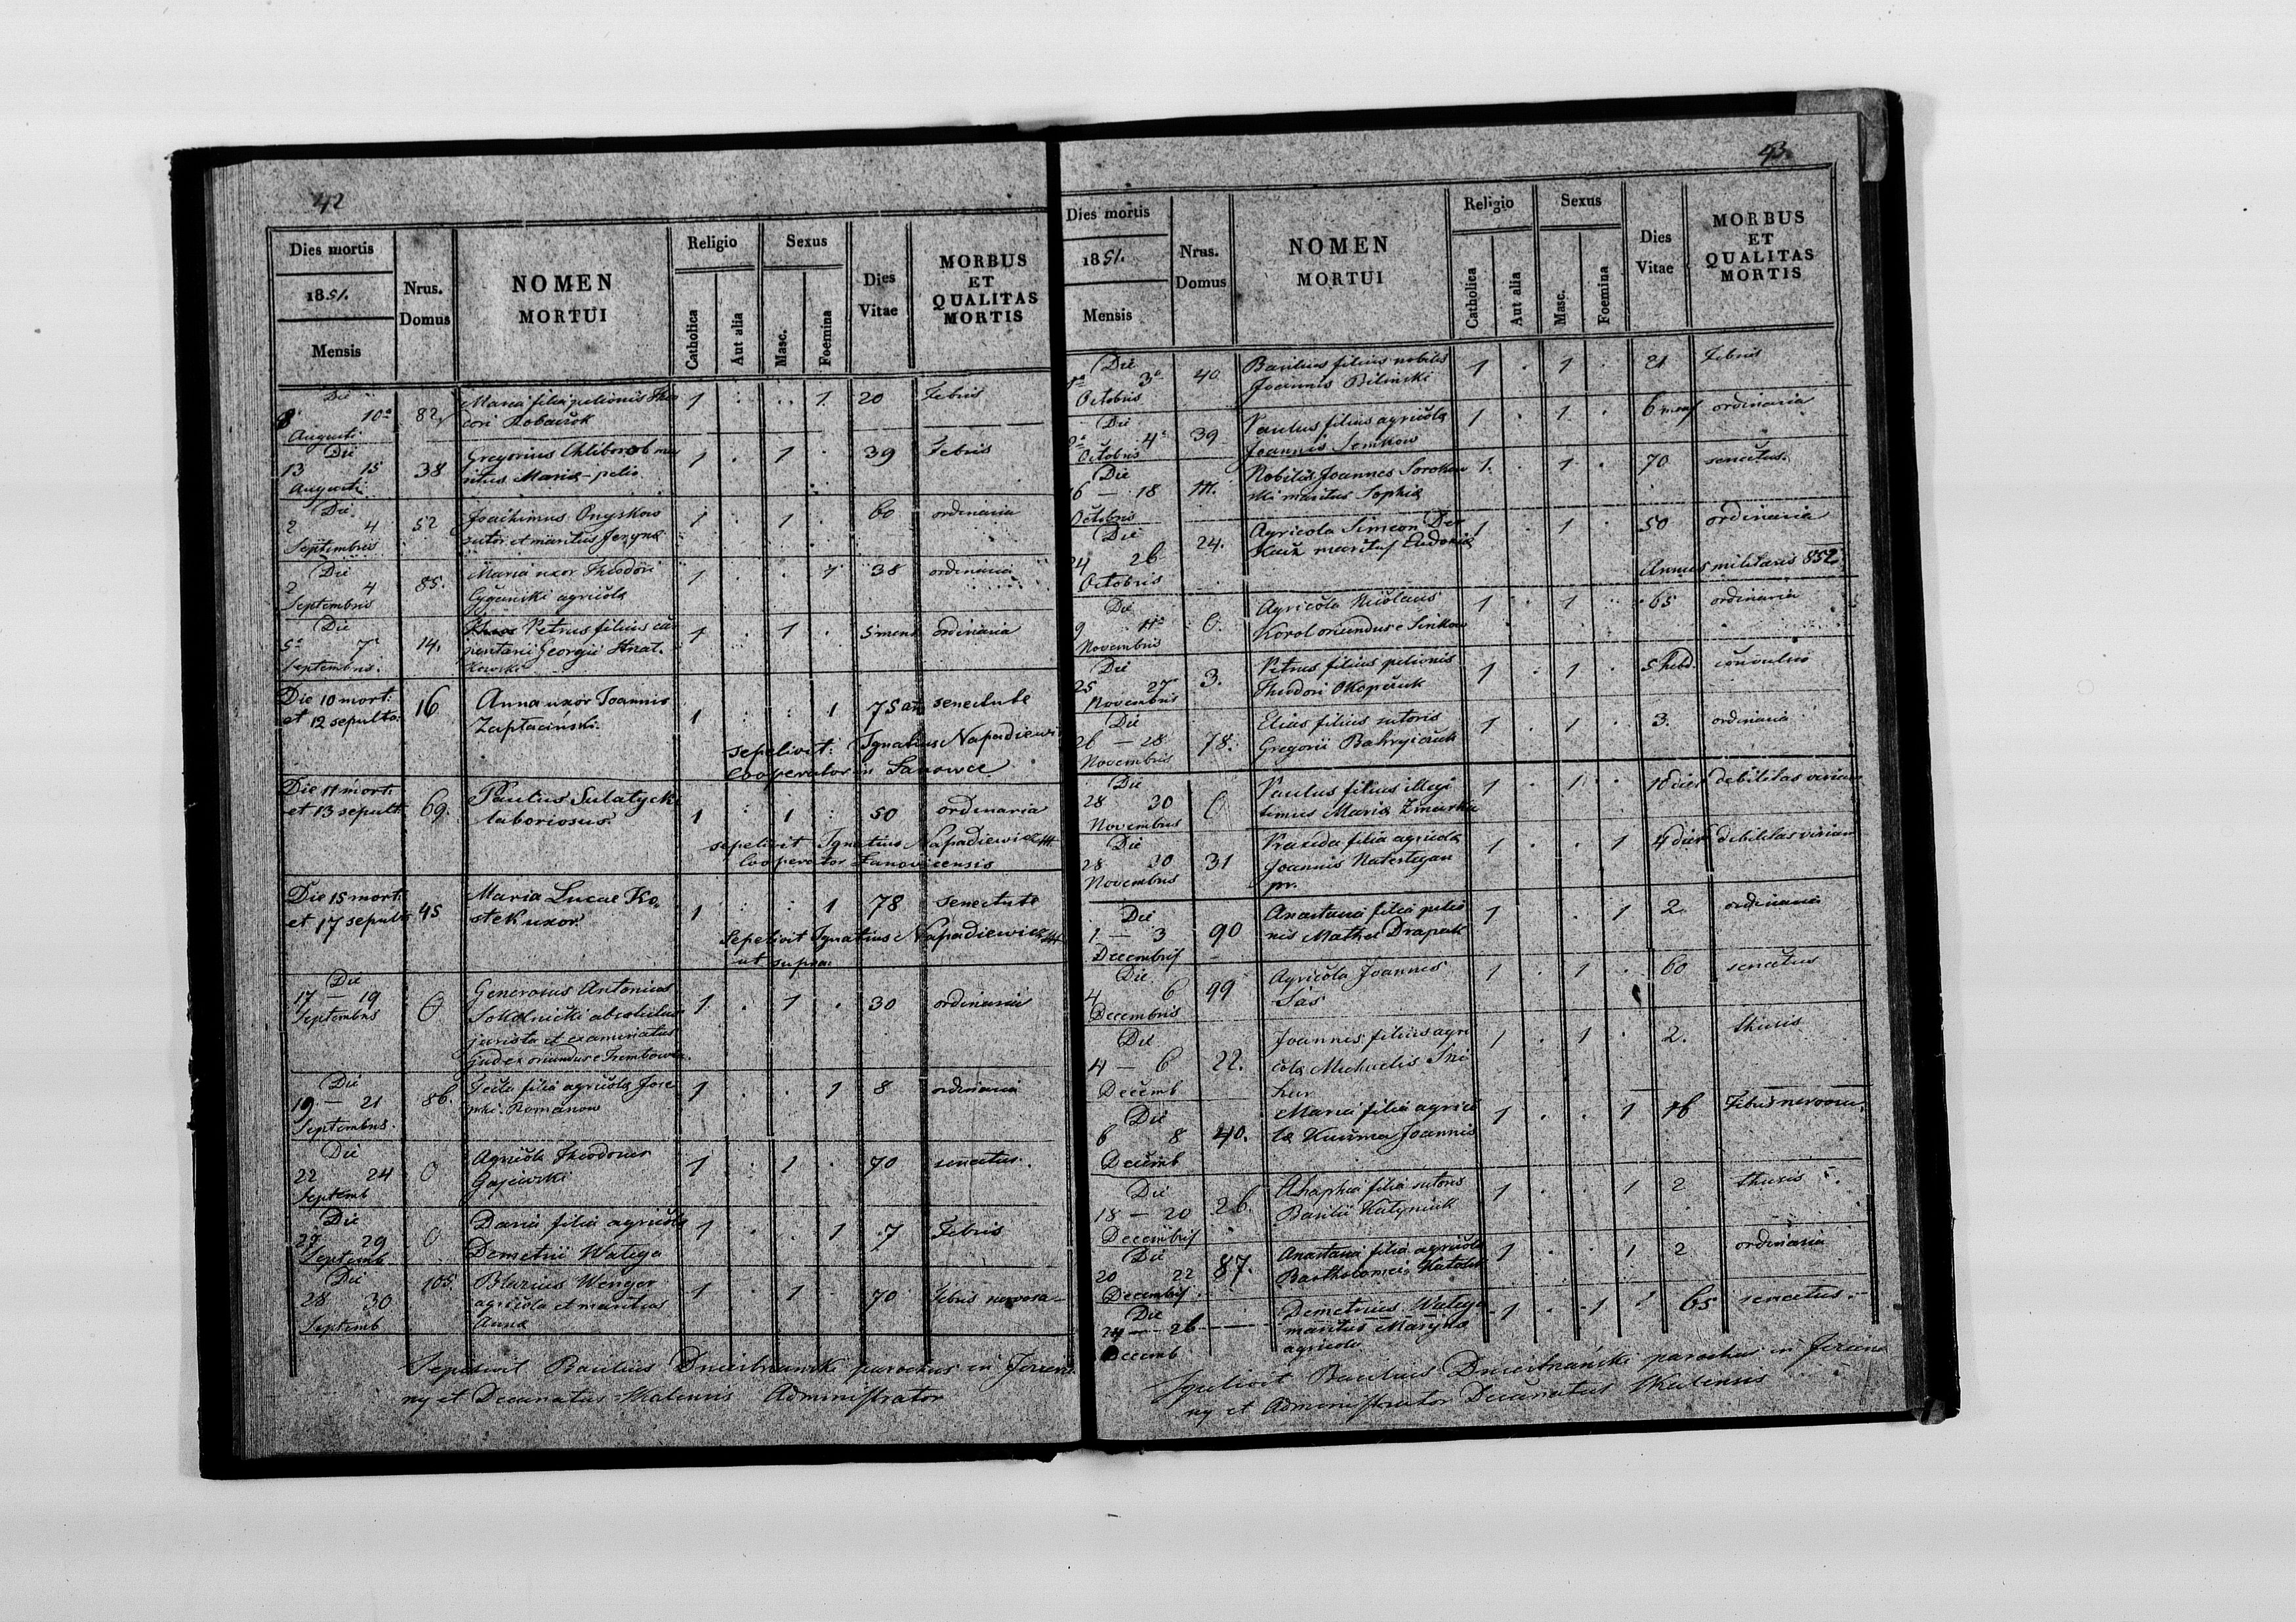 42
Dies mortis
1851.
Mensis
Nrus.
Domus
NOMEN
MORTUI
Religio
Catholica
Aut alia
Sexus
Masc.
Foemina
Dies
Vitae
MORBUS
ET
QUALITAS
MORTIS
Die
8 10a
Augusti
82
Maria filia pelionis Theo
dori
1 1 20 Febris
Die
13 15
Augusti
38
Gregorius Chliborob ma
ritus Mariæ pelio
1 1 39 Febris
Die
2 4
Septembris
52
Joachimus Onyskow
sutor et maritus
1 1 60 ordinaria
Die
2 4
Septembris
85.
Maria uxor Theodori
Cyganski agricolæ
1 1 38 ordinaria
Die
5a 7a
Septembris.
14.
Petrus filius car
pentarii Georgii Hnat-
kowski
1 1 5 mens ordinaria
Die 10 mort:
et 12 sepulta:
16
Anna uxor Joannis
Zaptaciński.
1 1 75 an senectute
sepelivit: Ignatius Napadiewi
Cooperator in Lanowce
Die 11 mort:
et 13 sepult:
69.
Paulus Sulatycki
laboriosus.
1 1 50 ordinaria
sepelivit Ignatius Napadiewicz
Cooperator Lanovicensis
Die 15 mort:
et 17 sepult:
45
Maria Lucae Ko-
stek uxor
1 1 78 senectute
Sepelivit Ignatius Napadiewicz
ut supra.
Die
17 — 19
Septembris
0
Generosus Antonius
Sokolnicki absolutus
jurista et examinatus
Judex oriundus e Trembowla
1 1 30 ordinaria
Die
19 — 21
Septembris.
86.
filia agricolæ Jose
phi Romanow
1 1 8 ordinaria
Die
22 24
Septemb
0
Agricola Theodorus
Gajewski
1 1 70 senectus.
Die
27 29
Septemb
0
Daria filia agricolæ
Demetrii Watega
1 1 7 Febris
Die
28 30
Septemb
105.
Blasius Wenger
agricola et maritus
Annæ
1 1 70 Febris nervosa
Sepelivit Basilius parochus in Jezierza
ny et Decanatus Skalensis Administrator
43.
Dies mortis
1851.
Mensis
Nrus.
Domus
NOMEN
MORTUI
Religio
Catholica
Aut alia
Sexus
Masc.
Foemina
Dies
Vitae
MORBUS
ET
QUALITAS
MORTIS
Die
1a 3a
Octobris
40
Basilius filius nobilis
Joannis Bilinski
1 1 21 Febris
Die
2a 4a
Octobris
39
Paulus filius agricolæ
Joannis Semkow
1 1 6 mens ordinaria
Die
16 — 18
Octobris
Nobilis Joannes Sorokow
ski maritus Sophiæ
1. 1 70 senectus.
Die
24 26
Octobris
24.
Agricola Simeon Der
kacz maritus Eudoxiæ
1 1 50 ordinaria
Annus militaris 852
Die
9 11a
Novembris
0.
Agricola Nicolaus
Korol oriundus e Sinkow
1 1 65 ordinaria
Die
25 27
Novembris
3.
Petrus filius pelionis
Theodori Okopczuk
1 1 5 hebd. convulsio
Die
26 — 28
Novembris
78.
Elias filius sutoris
Gregorii Bahryiczuk
1 1 3. ordinaria
Die
28 30
Novembris
0
Paulus filius illegi
timus Mariæ
1 1 10 dies debilitas virium
Die
28 30
Novembris
31
Praxeda filia agricolæ
Joannis
pr.
1 1 4 dies debilitas virium
Die
1 — 3
Decembris
90
Anastasia filia pelio
nis Mathei Drapak
1 1 2. ordinaria
Die
4 6
Decembris
99
Agricola Joannes
Sas
1 1 60 senectus
Die
4 — 6
Decemb
22.
Joannes filius agri
colæ Michaelis Sni
hur
1 1 2. thusis
Die
6 8
Decemb
40.
Maria filia agrico
læ Joannis
1 1 16 Febris nervosa
Die
18 — 20
Decembris
26
Ahaphia filia sutoris
Basilii Katyniuk
1 1 2 thusis
Die
20 22
Decembris
87.
Anastasia filia agricolæ
Bartholomei
1 1 2 ordinaria
Die
24 — 26
Decemb
Demetrius Watega
maritus Marynæ
agricola
1 1 65 senectus
Sepelivit Basilius parochus in Jezierza
ny et Administrator Decanatus Skalensis